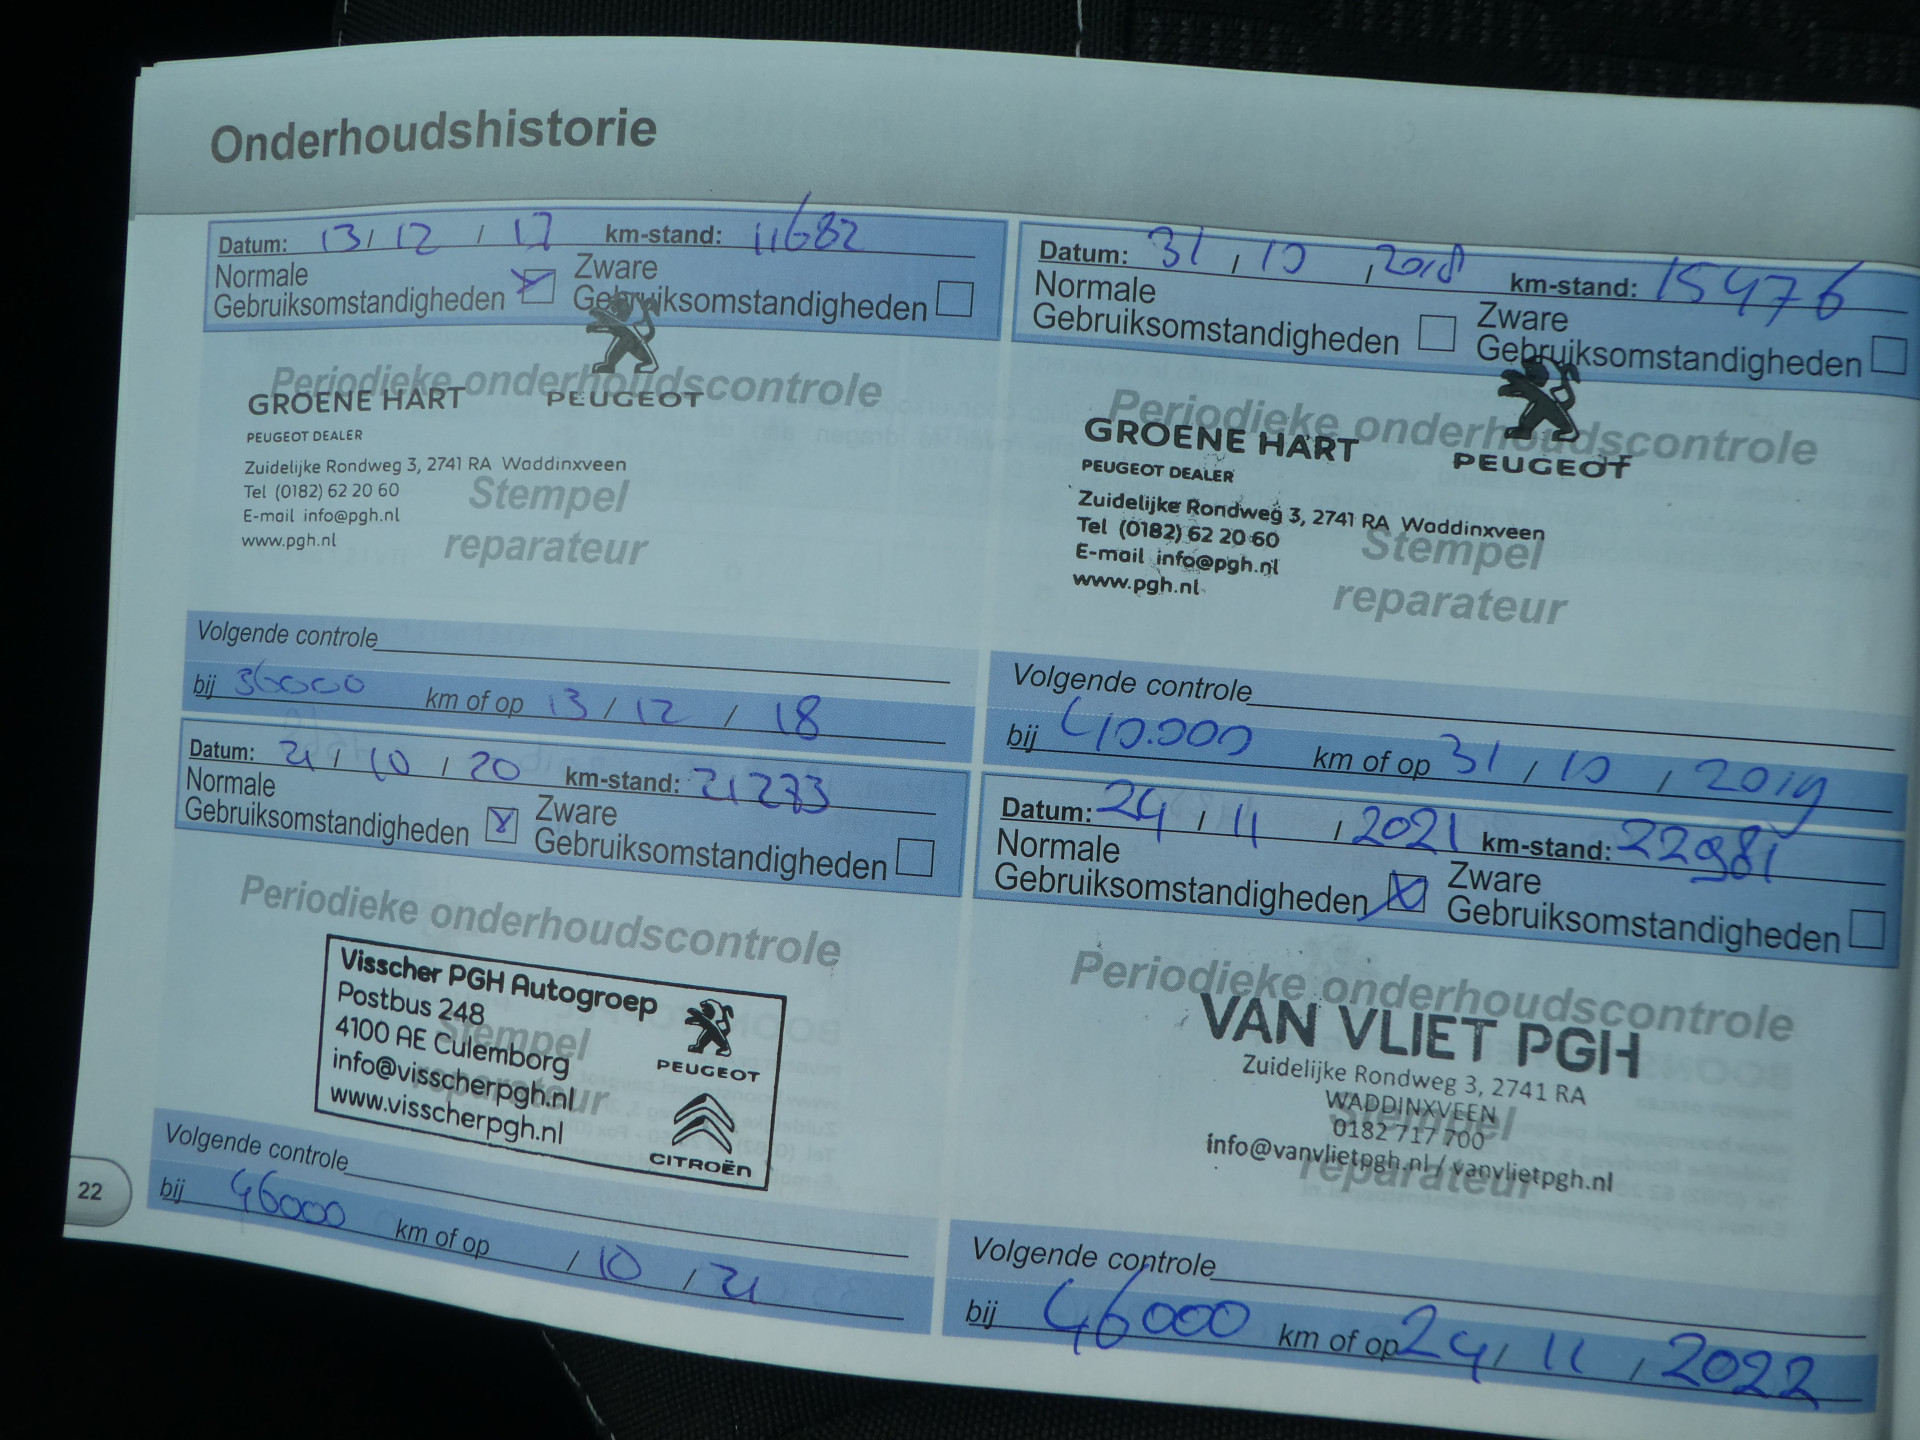 Onderhoudshistorie
Datum: 13/12/17 km-stand: 11682
Normale
Gebruiksomstandigheden
Zware
Gebruiksomstandigheden
Periodieke onderhoudscontrole
GROENE HART PEUGEOT
PEUGEOT DEALER
Zuidelijke Rondweg 3, 2741 RA Waddinxveen
Tel (0182) 62 20 60
E-mail info@pgh.nl
www.pgh.nl
Stempel
reparateur
Volgende controle
bij 36000 km of op 13/12/18
Datum: 31/10/2018 km-stand: 15476
Normale
Gebruiksomstandigheden
Zware
Gebruiksomstandigheden
Periodieke onderhoudscontrole
GROENE HART PEUGEOT
PEUGEOT DEALER
Zuidelijke Rondweg 3, 2741 RA Waddinxveen
Tel (0182) 62 20 60
E-mail info@pgh.nl
www.pgh.nl
Stempel
reparateur
Volgende controle
bij 40.000 km of op 31/10/2019
Datum: 21/10/20 km-stand: 21273
Normale
Gebruiksomstandigheden
Zware
Gebruiksomstandigheden
Periodieke onderhoudscontrole
Visscher PGH Autogroep
Postbus 248
4100 AE Culemborg
info@visscherpgh.nl
www.visscherpgh.nl
PEUGEOT
CITROËN
Stempel
reparateur
Volgende controle
bij 46000 km of op /10/21
Datum: 24/11/2021 km-stand: 22981
Normale
Gebruiksomstandigheden
Zware
Gebruiksomstandigheden
Periodieke onderhoudscontrole
VAN VLIET PGH
Zuidelijke Rondweg 3, 2741 RA
WADDINXVEEN
0182 717 700
info@vanvlietpgh.nl / vanvlietpgh.nl
Stempel
reparateur
Volgende controle
bij 46000 km of op 24/11/2022
22